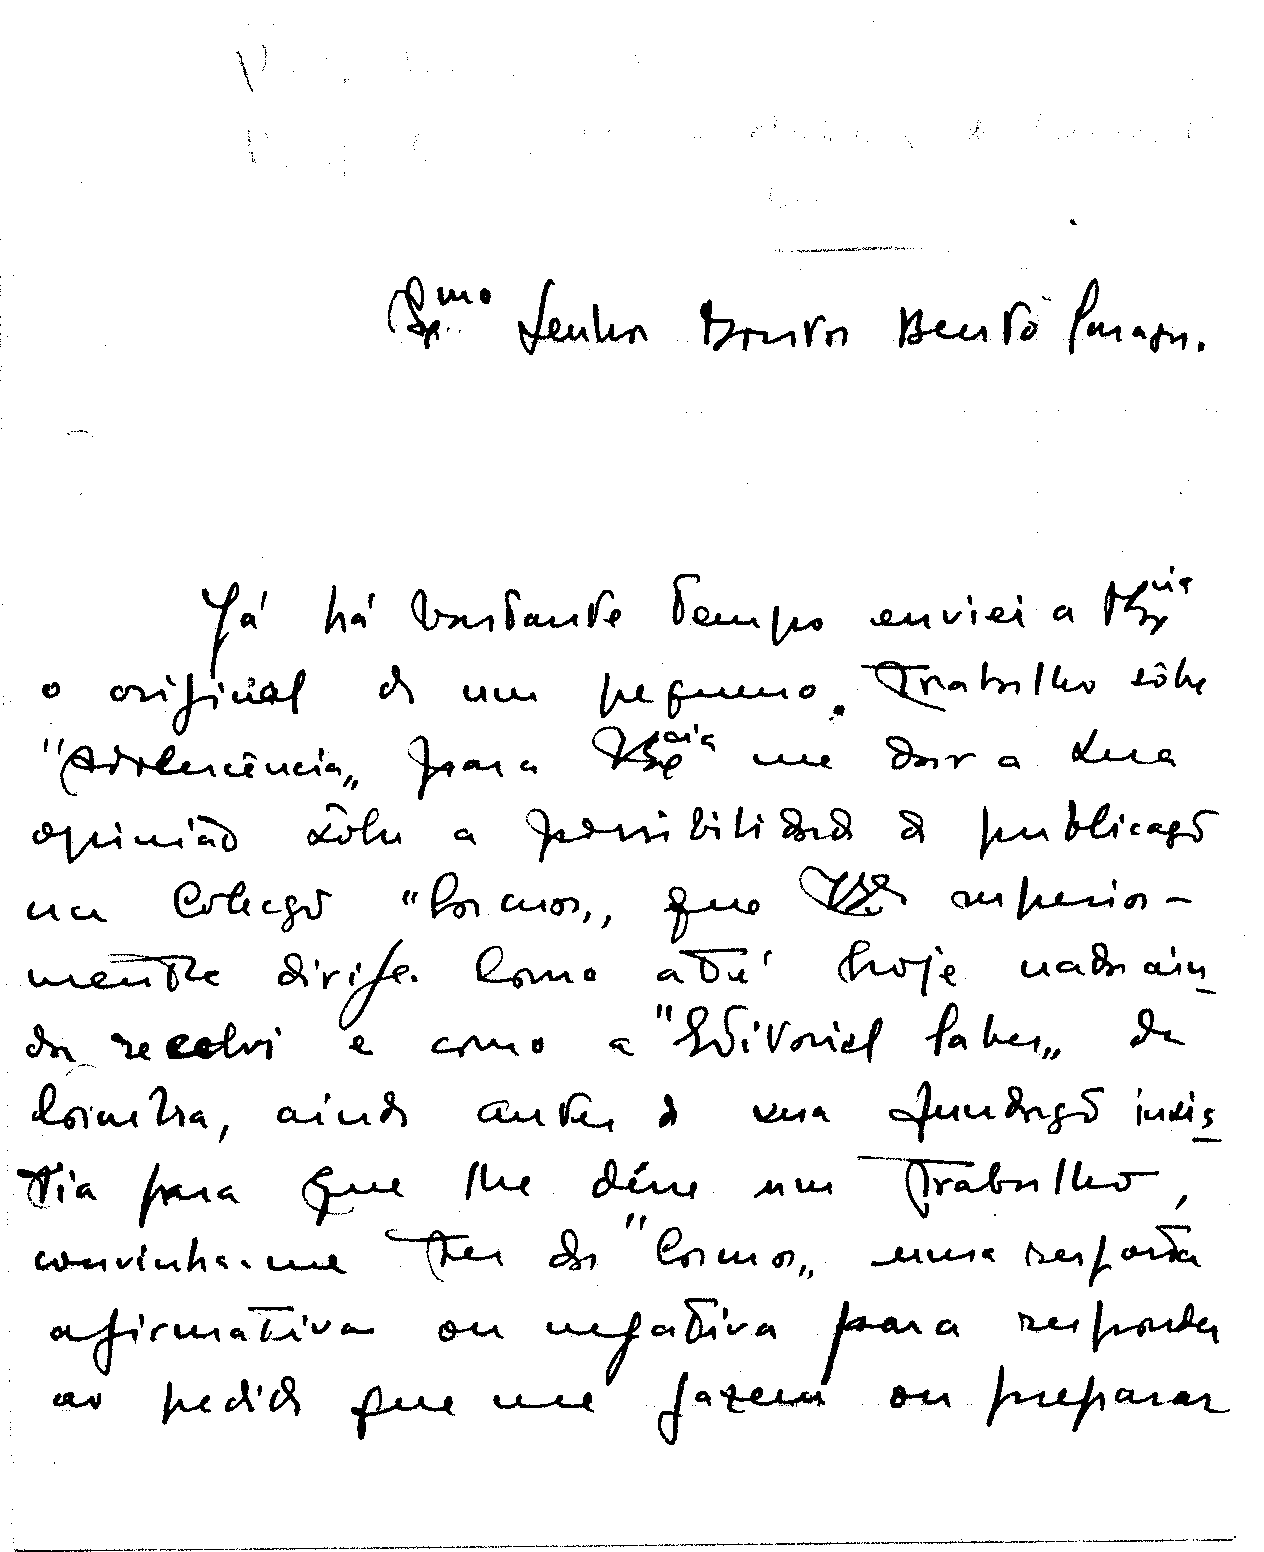 Exmo Senhor Doutor Bento Caraça.
Já há bastante tempo enviei a VExcia
o original de um pequeno trabalho sôbre
"Adolescência„ para VExcia me dar a sua
opinião sôbre a possibilidade de publicação
na Colecção "Cosmos„, que VEx superior-
mente dirije. Como até hoje nada ain-
da recebi e como a "Editorial Saber„ de
Coimbra, ainda antes da sua fundação insis-
tia para que lhe désse um trabalho,
convinha-me ter da "Cosmos„ uma resposta
afirmativa ou negativa para responder
ao pedido que me fazem ou preparar